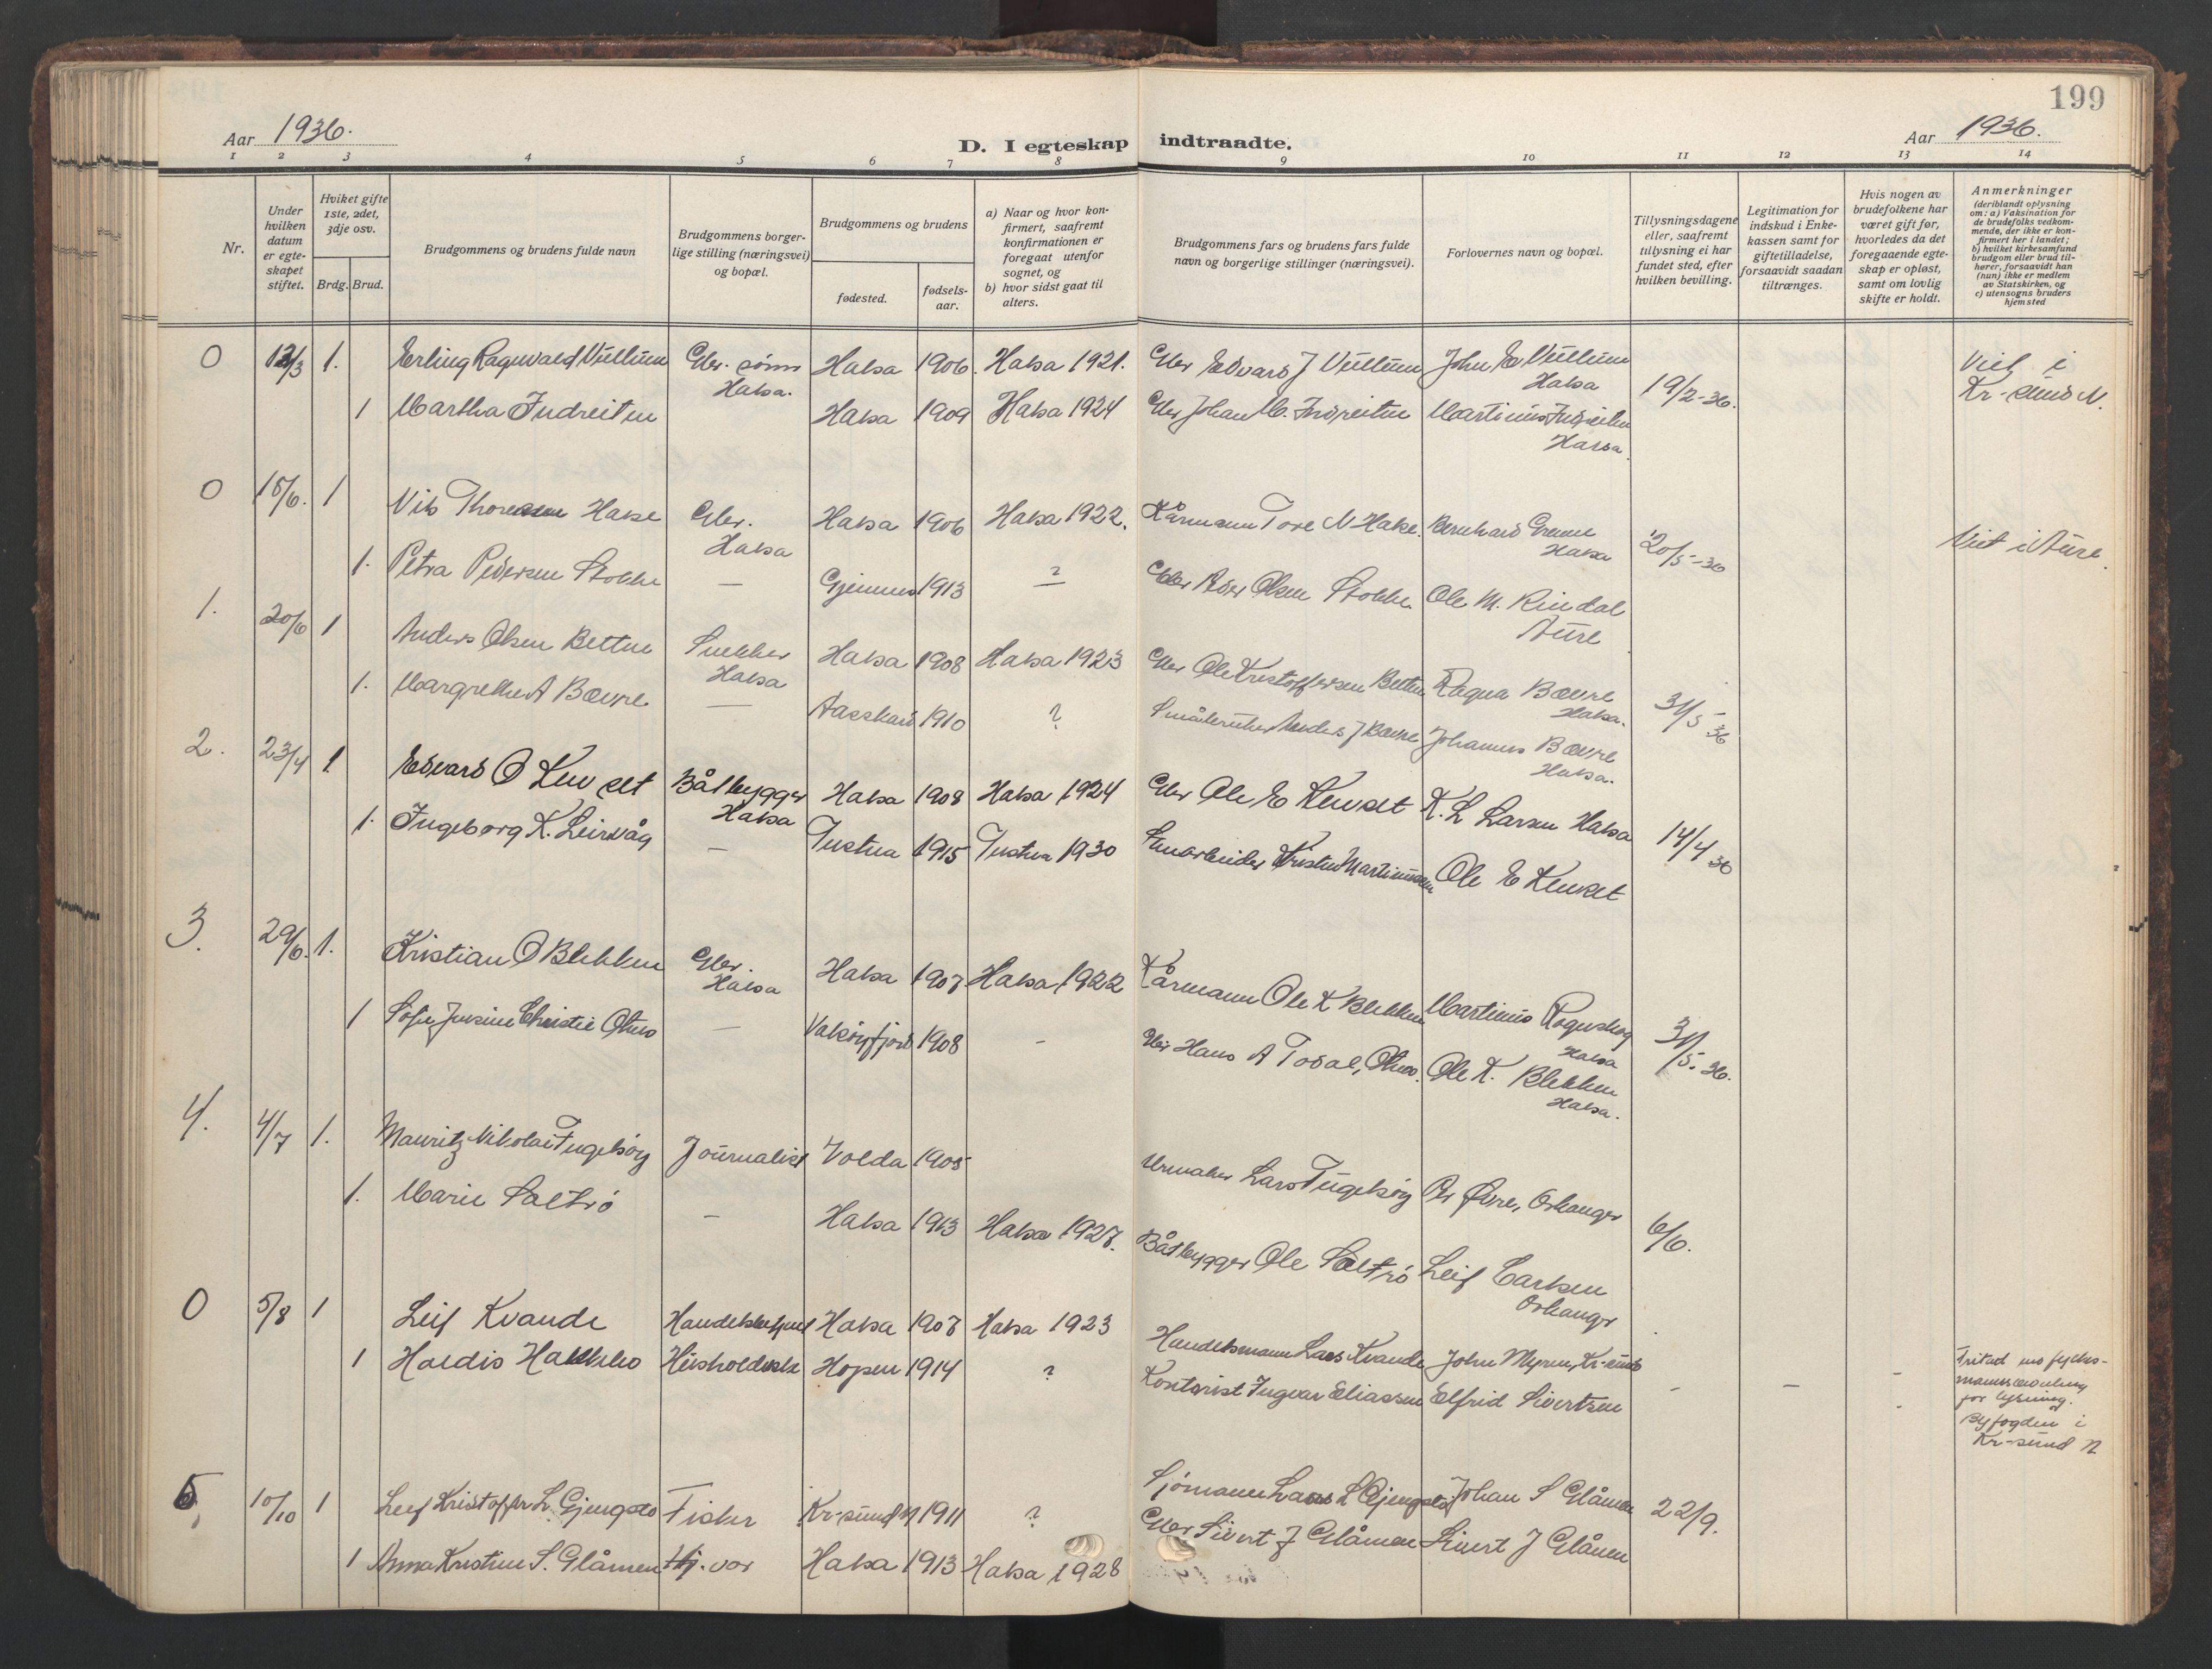 199
Aar 1936.
D. I egteskap indtraadte.
Aar 1936.
1 2 3 4 5 6 7 8 9 10 11 12 13 14
Nr.
Under hvilken datum er egteskapet stiftet.
Hviket gifte 1ste, 2det, 3dje osv.
Brdg. Brud.
Brudgommens og brudens fulde navn
Brudgommens borgerlige stilling (næringsvei) og bopæl.
Brudgommens og brudens
fødested.
fødselsaar.
a) Naar og hvor konfirmert, saafremt konfirmationen er foregaat utenfor sognet, og
b) hvor sidst gaat til alters.
Brudgommens fars og brudens fars fulde navn og borgerlige stillinger (næringsvei).
Forlovernes navn og bopæl.
Tillysningsdagene eller, saafremt tilysning ei har fundet sted, efter hvilken bevilling.
Legitimation for indskud i Enkekassen samt for giftetilladelse, forsaavidt saadan tiltrænges.
Hvis nogen av brudefolkene har været gift før, hvorledes da det foregaaende egteskap er opløst, samt om lovlig skifte er holdt.
Anmerkninger (deriblandt oplysning om: a) Vaksination for de brudefolks vedkommende, der ikke er konfirmert her i landet; b) hvilket kirkesamfund brudgom eller brud tilhører, forsaavidt han (hun) ikke er medlem av Statskirken, og c) utensogns bruders hjemsted
0 12/3 1. Erling Ragnvald Vullum Gbr. sønn Halsa. Halsa 1906. Halsa 1921. Gbr Edvard J Vullum John E Vullum Halsa 19/2-36. Viet i Kr-sund N.
1 Martha Indreiten Halsa 1909 Halsa 1924 Gbr Johan M. Indreiten Martinus Indreiten Halsa.
0 15/6. 1 Nils Thoresen Halse Gbr. Halsa Halsa 1906 Halsa 1922. Kårmann Tore N Halse. Bernhard Halsa 20/5-36 Viet i Aure.
1. Petra Pedersen Stokke — 1913 ? Gbr Peder Olsen Stokke. Ole M. Rindal Aure
1. 20/6 1 Anders Olsen Betten Snekker Halsa Halsa 1908 Halsa 1923 Gbr Ole Kristoffersen Betten Ragna Bævre Halsa. 31/5-36
1. Margrethe A Bævre — 1910 ? Småbruker Anders J Bævre Johannes Bævre Halsa.
2. 23/4 1 Edvard O Båtbygger Halsa Halsa 1908 Halsa 1924 Gbr Ole E K. L Larsen Halsa 14/4 36
1. Ingeborg K. Leirvåg — Tustna 1915 Tustna 1930 Kristen Martinussen Ole E
3. 29/6. 1. Kristian O Blekken Gbr. Halsa Halsa 1907 Halsa 1922 Kårmann Ole K Blekken Martinus Rognskog Halsa 31/5-36.
1 Sofie Jensine Christie Otnes — Valsøyfjord 1908 - Gbr Hans A Todal, Otnes. Ole K. Blekken Halsa.
4. 4/7 1. Mauritz Nikolai Fugelsøy Journalist Volda 1905 Urmaker Lars Fugelsøy Per Øvre, Orkanger 6/6.
1. Marie Sæltrø — Halsa 1913 Halsa 1927. Båtbygger Ole Sæltrø Leif Carlsen Orkanger
0 5/8 1 Leif Kvande Handelsbetjent Halsa 1907 Halsa 1923 Handelsmann Lars Kvande John Myren, Kr-sund - — -
1 Haldis Husholderske Hopen 1914 ? Kontorist Ingvar Eliassen Elfrid Sivertsen Fritad for lysning. Byfogden i Kr-sund N
5, 10/10 1 Leif Kristoffer L. Gjengstø Fisker Kr-sund N 1911 ? Sjømann Lars L Gjengstø Johan S Glåmen 22/9.
1 Anna Kristine S. Glåmen Hj. vær Halsa 1913 Halsa 1928 Gbr Sivert J Glåmen Sivert J Glåmen